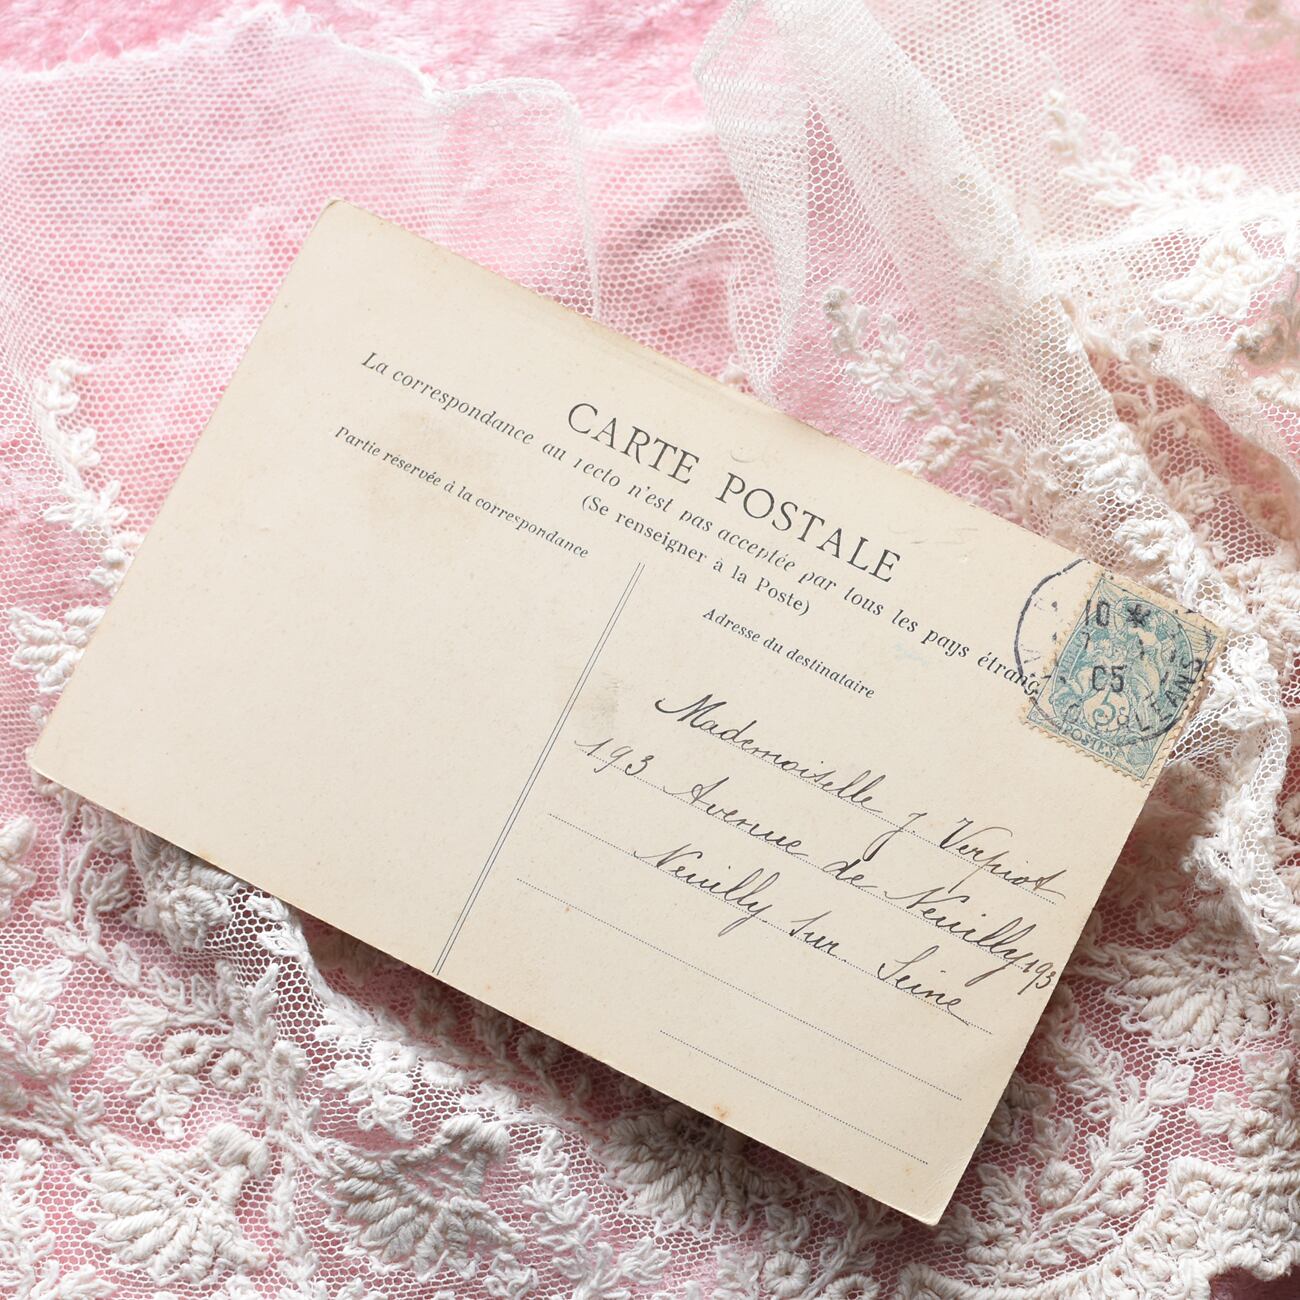 CARTE POSTALE
La correspondance au recto n'est pas acceptée par tous les pays étrang
(Se renseigner à la Poste)
Partie réservée à la correspondance
Adresse du destinataire
Mademoiselle J. Verpiot
193 Avenue de Neuilly 193
Neuilly sur Seine
10 *
05
ORLEANS
5c
POSTES